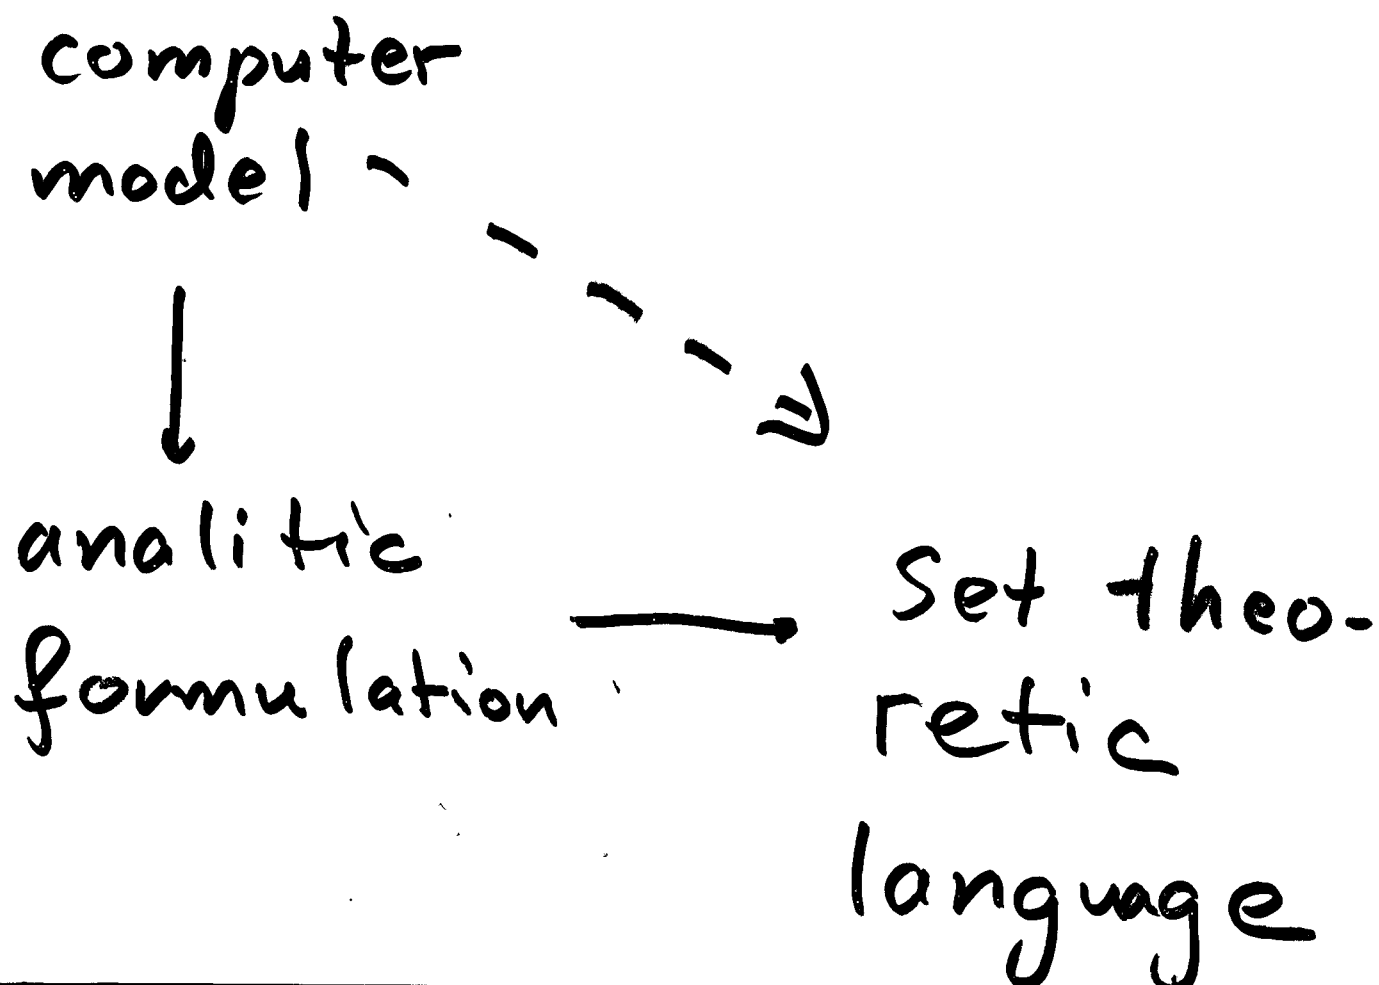 computer
model
analitic
formulation
Set theo-
retic
language